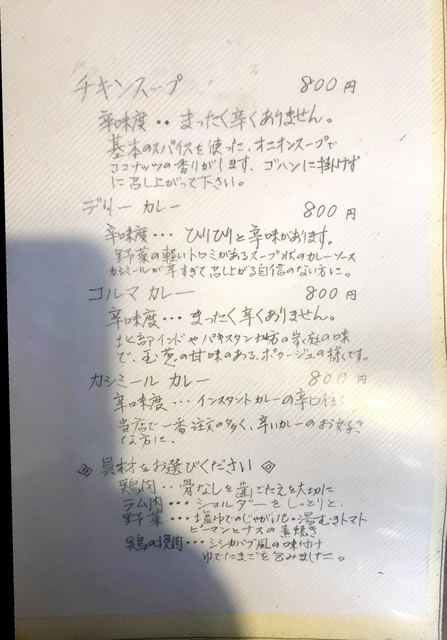 チキンスープ 800円
辛味度・・まったく辛くありません。
基本のスパイスを使った、オニオンスープで
ココナッツの香りがします。ゴハンに掛けず
に召し上がって下さい。
デリー カレー 800円
辛味度・・・ひりひりと辛味があります。
野菜の軽いトロミがあるスープ状のカレーソース
カシミールが辛すぎて召し上がる自信のない方に。
コルマ カレー 800円
辛味度・・・まったく辛くありません。
北部インドやパキスタン地方の家庭の味
で、玉葱の甘味のある、ポタージュの様です。
カシミール カレー 800円
辛味度・・・インスタントカレーの辛口位で
当店で一番注文の多く、辛いカレーのお好き
な方に.
◎具材をお選びください◎
鶏肉・・・骨なしを歯ごたえを大切に
ラム肉・・・ショルダーをしっとりと.
野菜・・・塩ゆでのじゃがいも・湯むきトマト
ピーマンとナスの素焼き
鶏の挽肉・・・シシカバブ風の味付け
ゆでたまごを包みました。